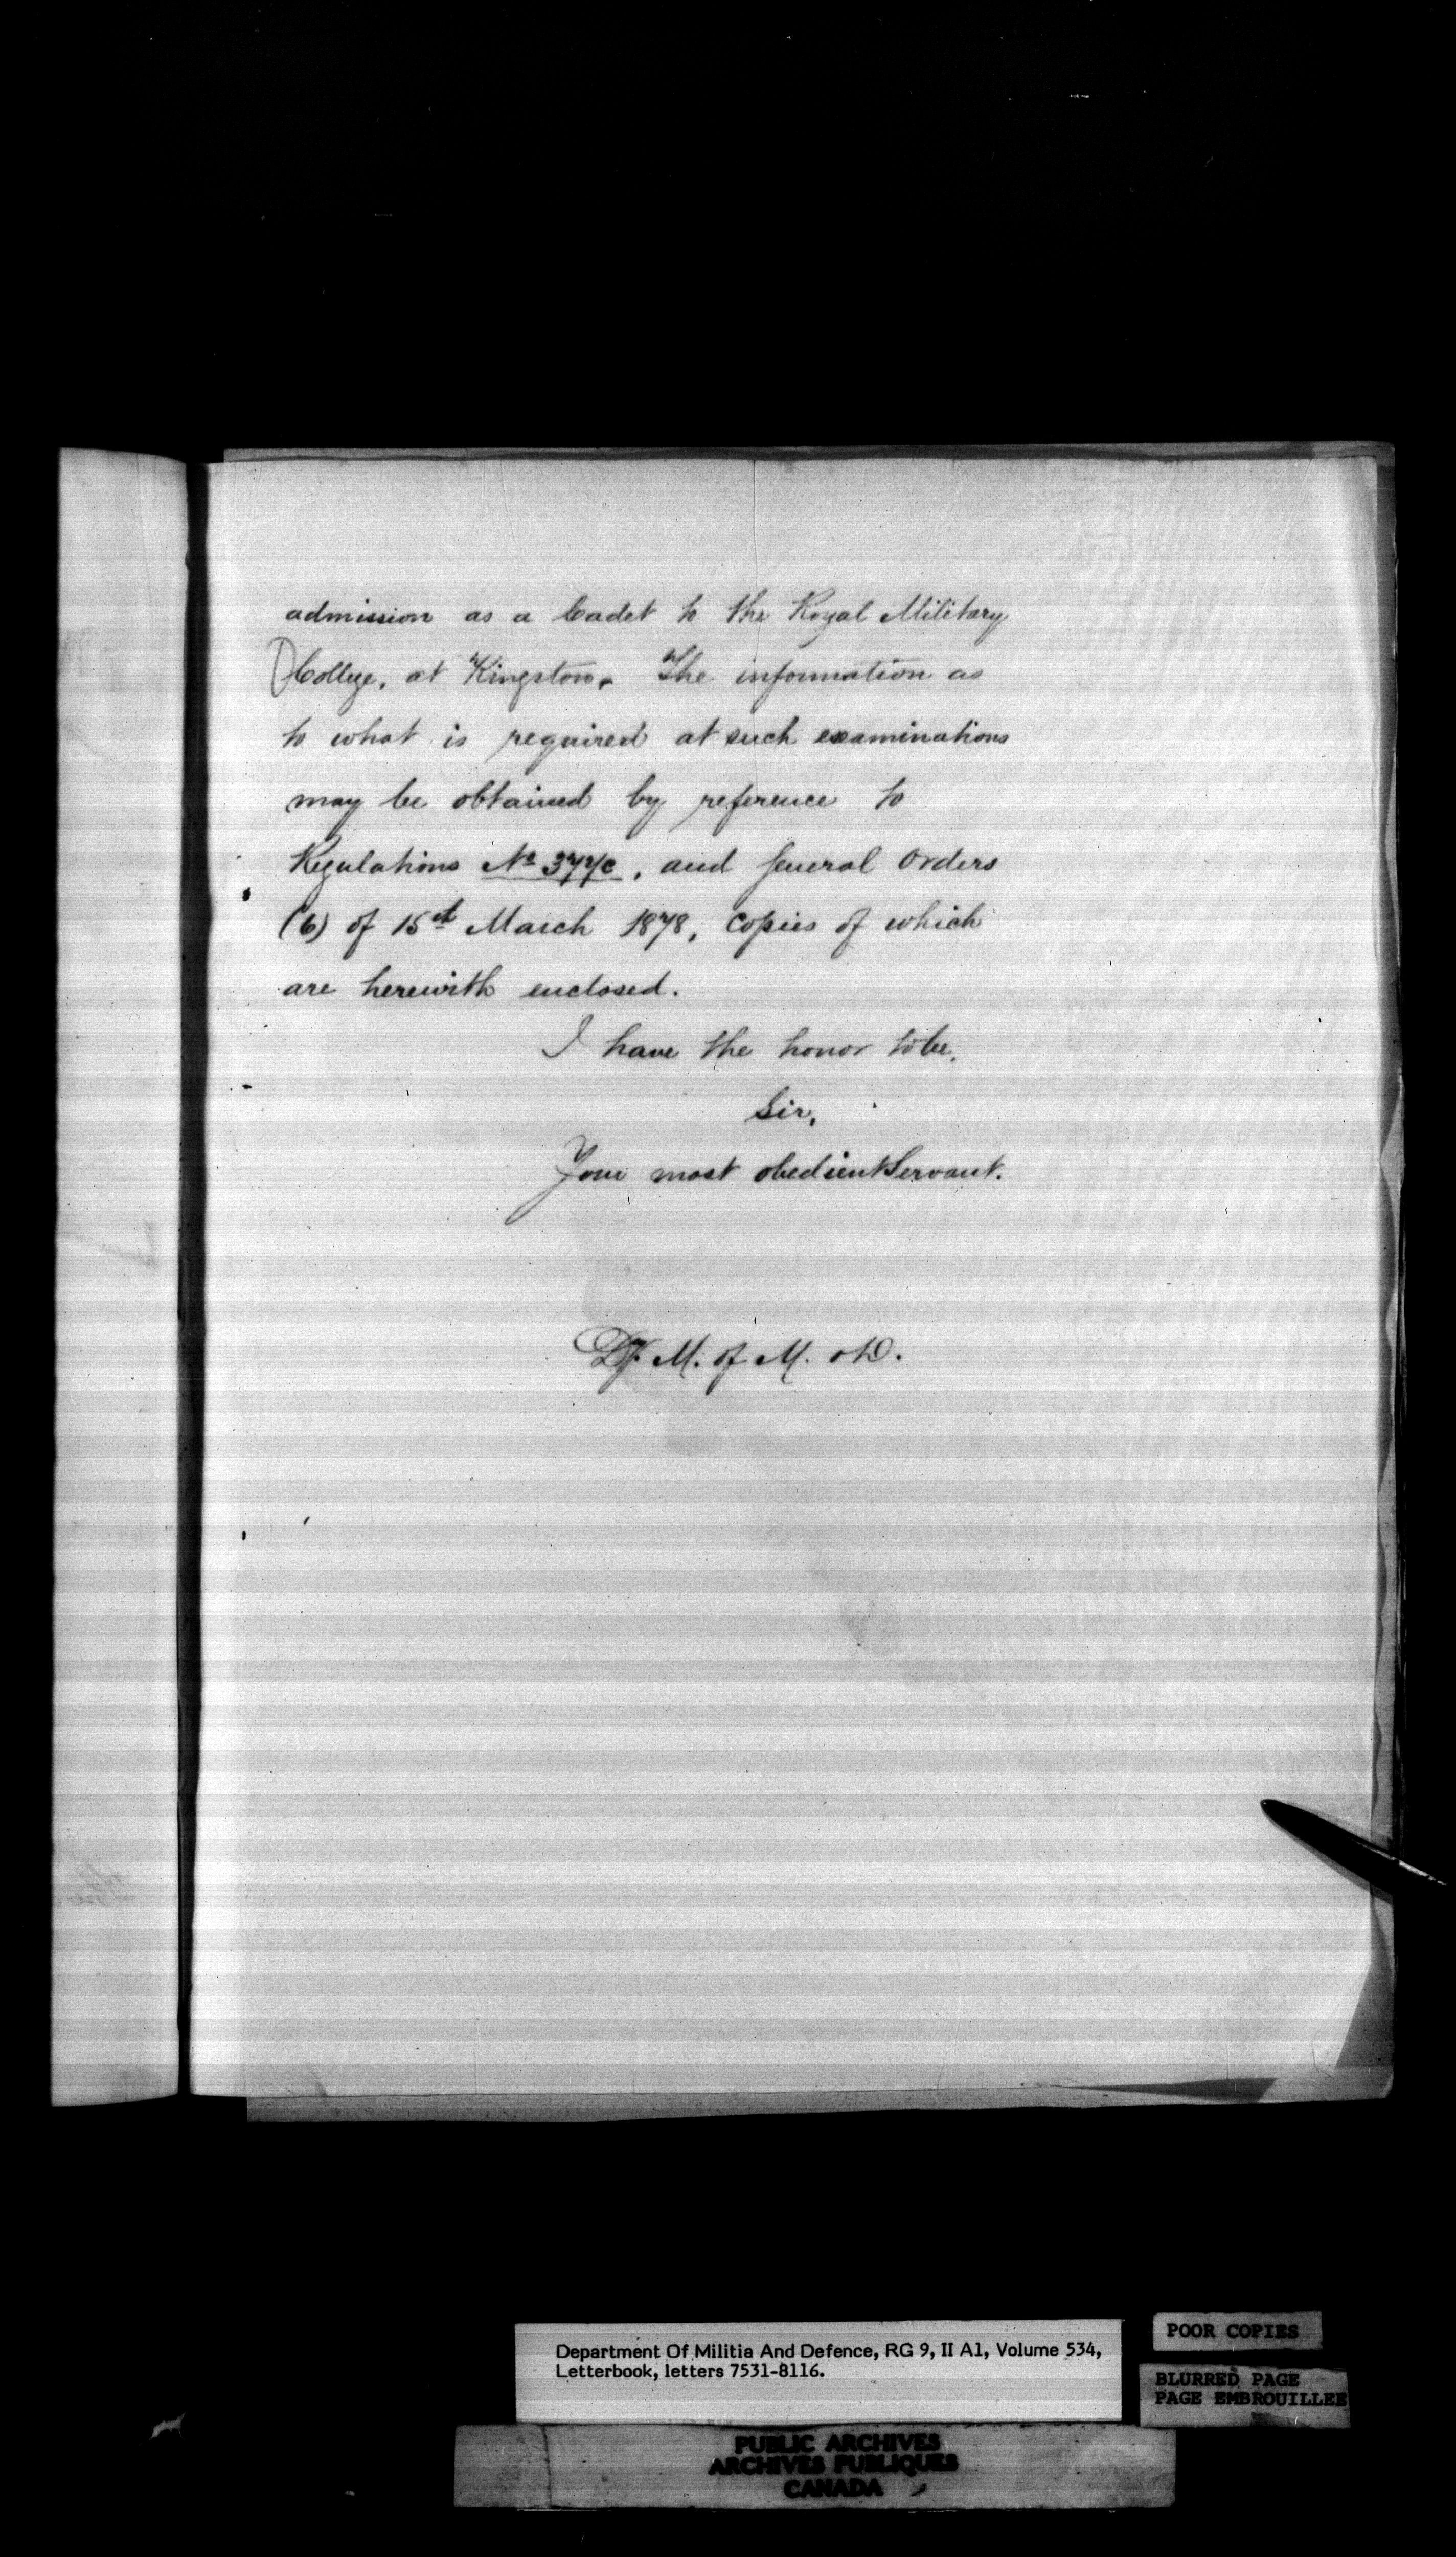 admission as a Cadet to the Royal Military
College, at Kingston. The information as
to what is required at such examinations
may be obtained by reference to
Regulations No 377/c, and General Orders
(6) of 15th March 1878, Copies of which
are herewith enclosed.
I have the honor to be,
Sir,
Your most obedient Servant.
Dy. M. of M. & D.
Department Of Militia And Defence, RG 9, II A1, Volume 534,
Letterbook, letters 7531-8116.
POOR COPIES
BLURRED PAGE
PAGE EMBROUILLEE
PUBLIC ARCHIVES
ARCHIVES PUBLIQUES
CANADA